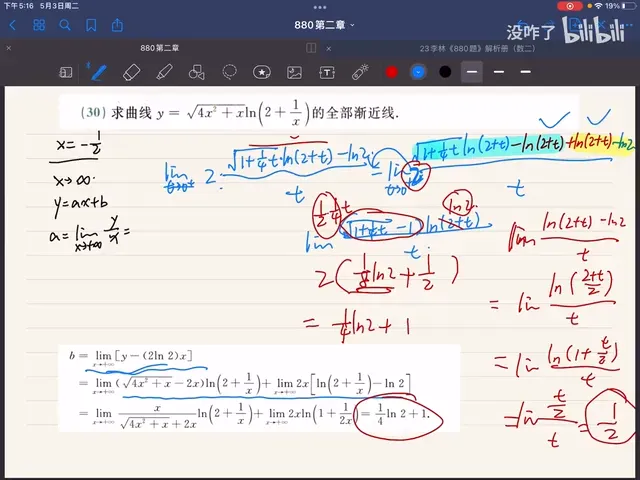 下午5:16 5月3日周二
19%
880第二章
没咋了 bilibili
880第二章
23李林《880题》解析册（数二）
(30) 求曲线 y = √(4x² + x) ln(2 + 1/x) 的全部渐近线.
x = -1/2
x→∞
y = ax+b
a = lim x→+∞ y/x =
lim t→0⁺ 2· (√(1+1/4t)·ln(2+t) - ln2)/t = lim t→0 2 (√(1+1/4t) ln(2+t) - ln(2+t) + ln(2+t) - ln2)/t
1/2 · 1/4 t
ln2
lim (√(1+1/4t) - 1) ln(2+t) / t
2(1/8 ln2 + 1/2)
= 1/4 ln2 + 1
lim (ln(2+t) - ln2)/t
= lim ln((2+t)/2)/t
= lim ln(1+t/2)/t
= lim (t/2)/t = 1/2
b = lim x→+∞ [y-(2ln 2)x]
= lim x→+∞ (√(4x² + x) - 2x)ln(2 + 1/x) + lim x→+∞ 2x[ln(2 + 1/x) - ln 2]
= lim x→+∞ x/(√(4x² + x) + 2x) ln(2 + 1/x) + lim x→+∞ 2xln(1 + 1/2x) = 1/4 ln 2 + 1.